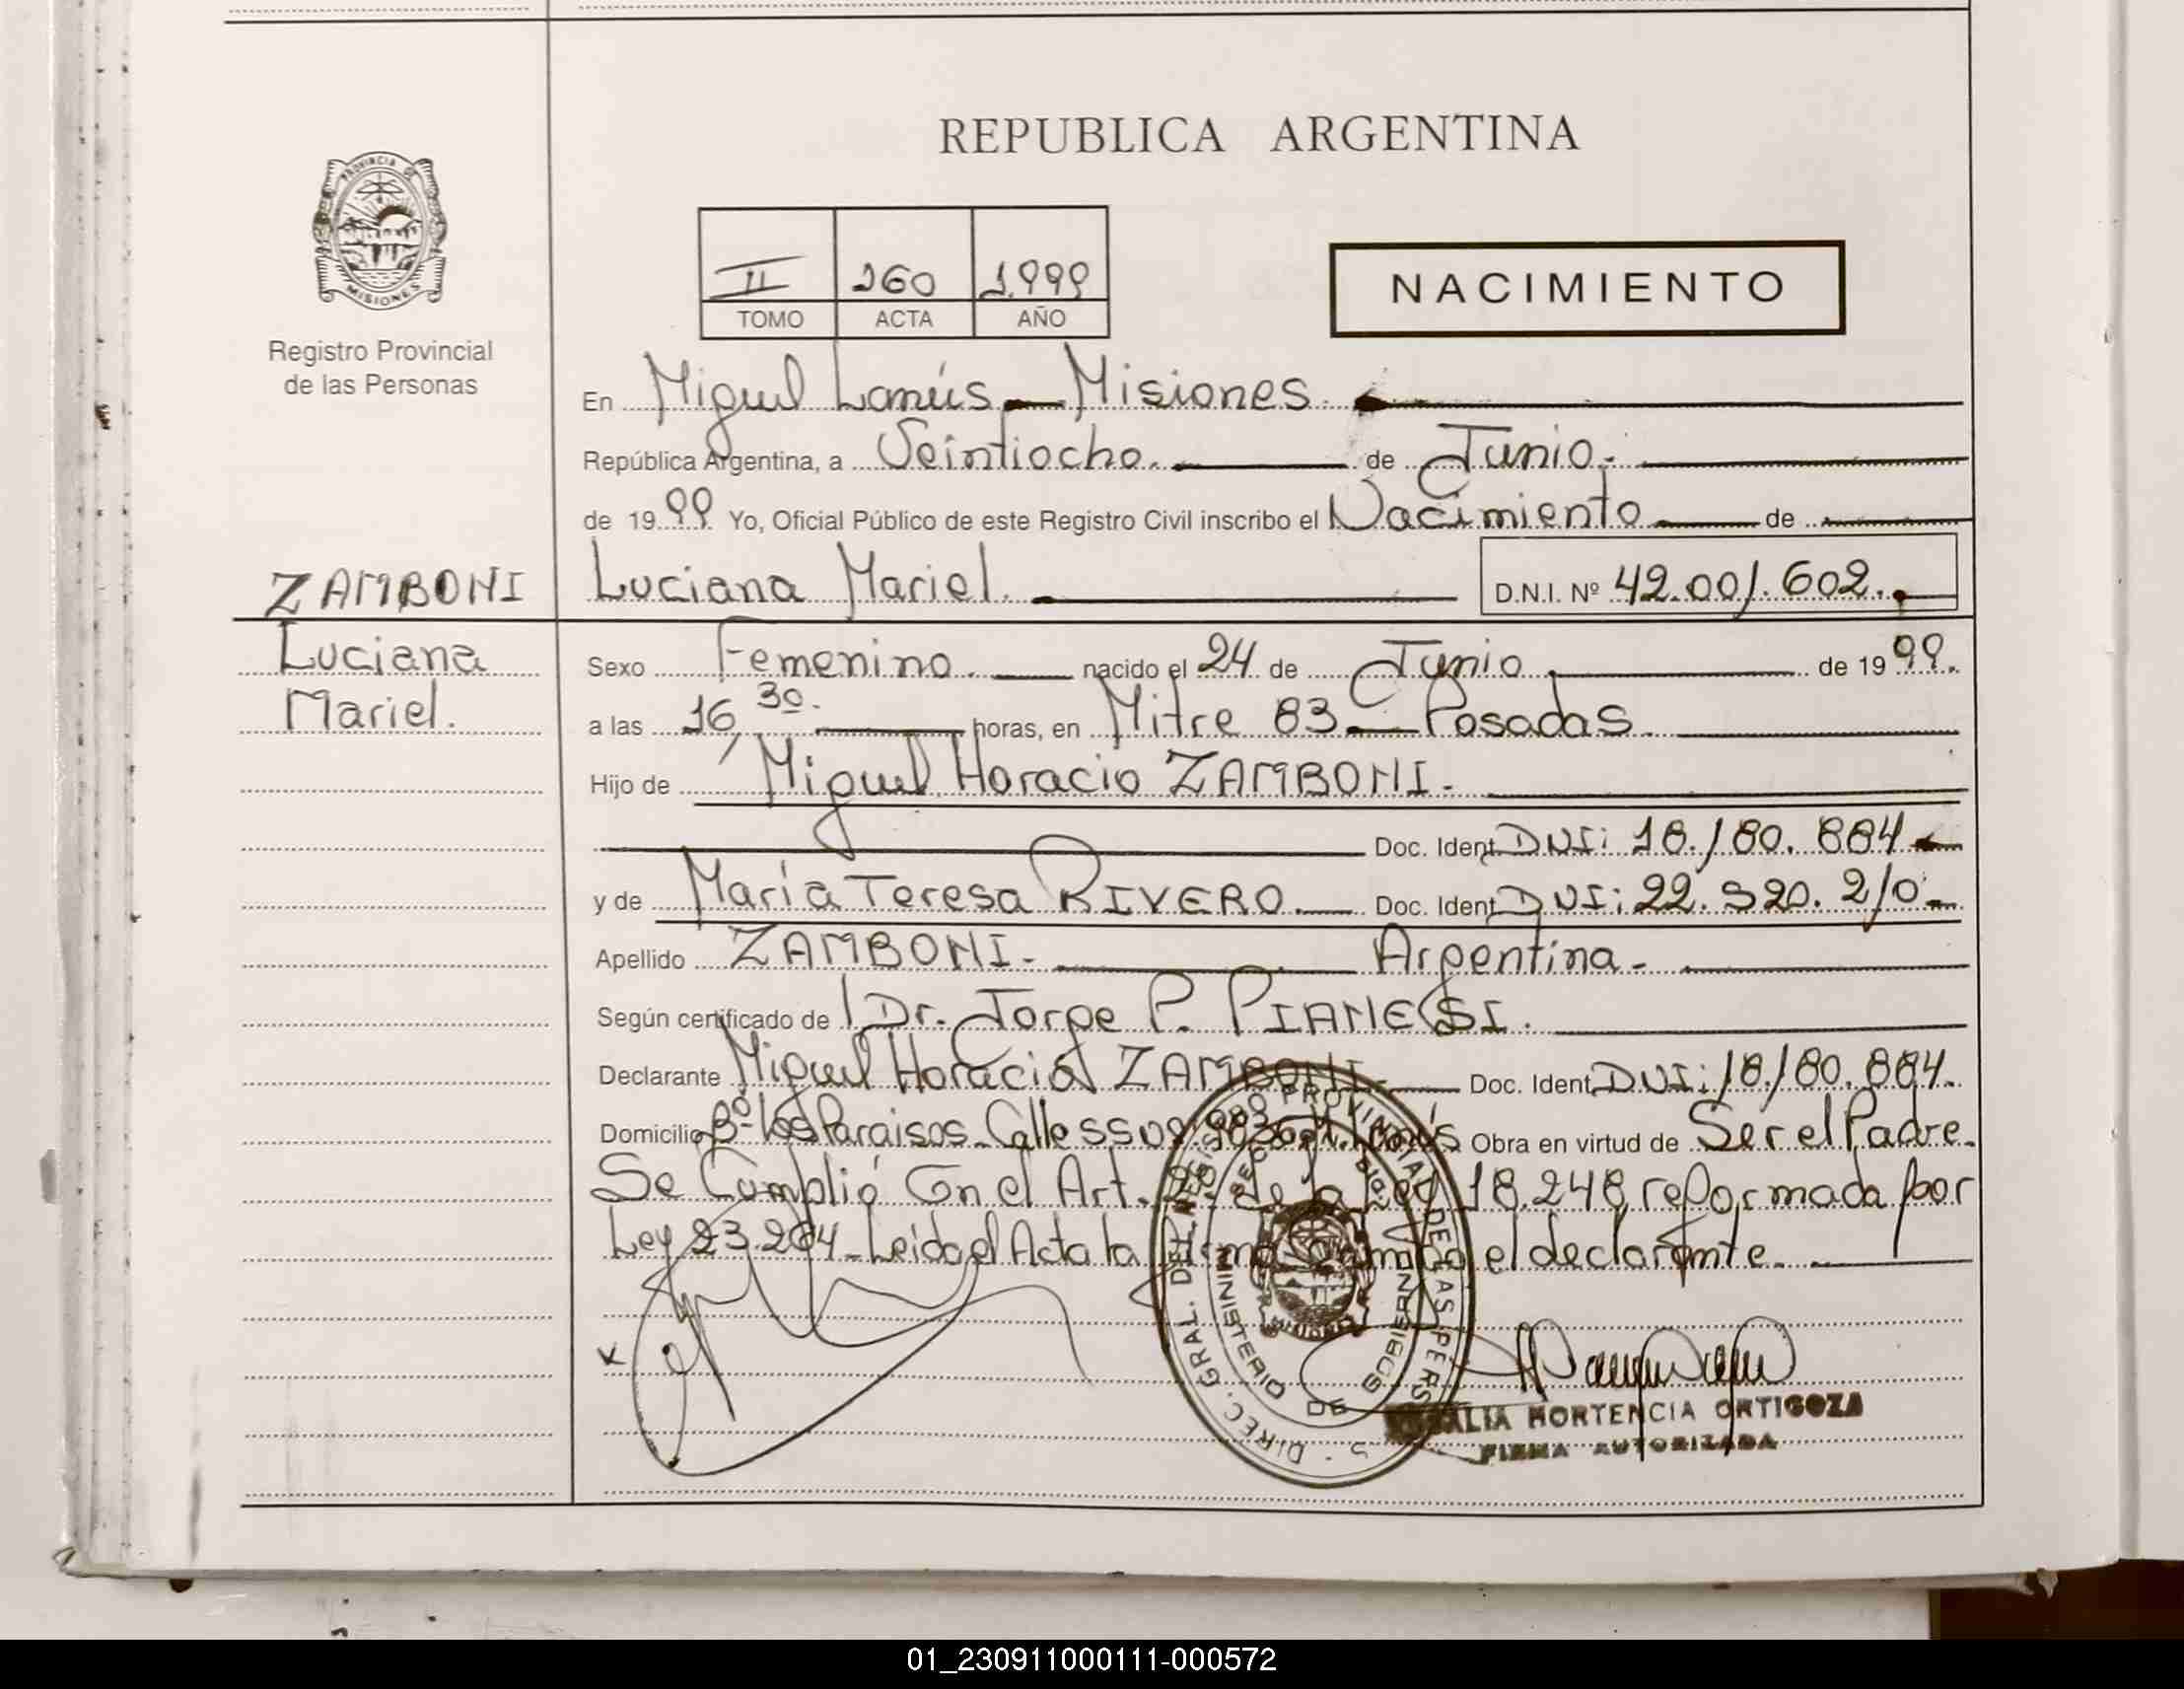 REPUBLICA ARGENTINA
PROVINCIA DE MISIONES
Registro Provincial
de las Personas
II 260 1.999
TOMO ACTA AÑO
NACIMIENTO
En Miguel Lanús - Misiones.
República Argentina, a Veintiocho. de Junio.
de 1999. Yo, Oficial Público de este Registro Civil inscribo el Nacimiento de
ZAMBONI
Luciana
Mariel.
Luciana Mariel. D.N.I. Nº 42.001.602.
Sexo Femenino. nacido el 24 de Junio. de 1999.
a las 16,30. horas, en Mitre 83 - Posadas.
Hijo de Miguel Horacio ZAMBONI.
Doc. Ident. DNI: 18.180.884
y de María Teresa RIVERO. Doc. Ident. DNI: 22.520.210.
Apellido ZAMBONI. Argentina.
Según certificado de Dr. Jorge P. PIANESSI.
Declarante Miguel Horacio ZAMBONI. Doc. Ident. DNI: 18.180.884.
Domicilio Bº Los Paraisos. Calle Obra en virtud de Ser el Padre.
Se Cumplió Con el Art. de la Ley 18.248, reformada por
Ley 23.264. Leída el Acta la firma el declarante.
DIREC. GRAL. DEL REGISTRO PROVINCIAL DE LAS PERS
MINISTERIO DE GOBIERNO
HORTENCIA ORTIGOZA
FIRMA AUTORIZADA
01_230911000111-000572